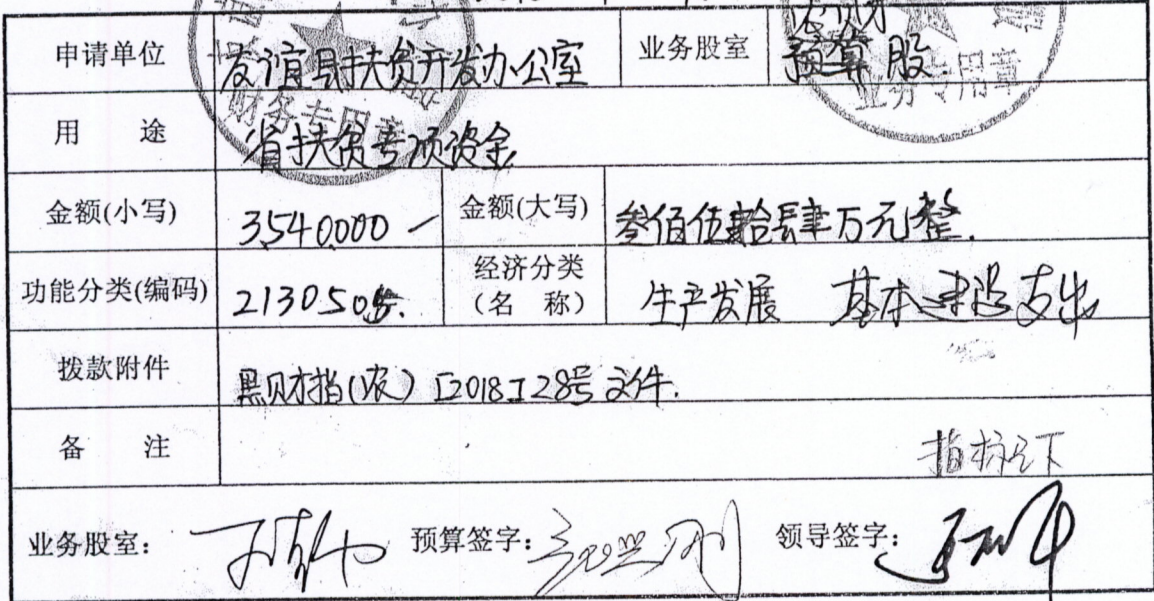 农财
申请单位 友谊县扶贫开发办公室 业务股室 预算股.
财务专用章 业务专用章
用 途 省扶贫专项资金
金额(小写) 3540000- 金额(大写) 叁佰伍拾肆万元整.
功能分类(编码) 2130505. 经济分类(名 称) 生产发展 基本建设支出
拨款附件 黑财指(农)[2018]28号文件.
备 注 指标已下
业务股室: 预算签字: 领导签字: